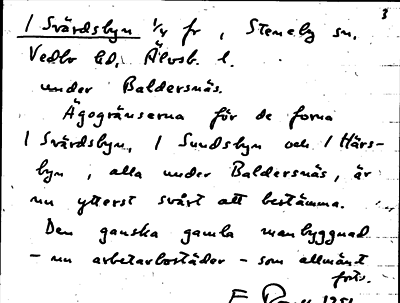 3
1 Svärdsbyn 1/4 fr, Steneby sn.
Vedbo hd, Älvsb. l.
under Baldersnäs.
Ägogränserna för de forna
1 Svärdsbyn, 1 Sundsbyn och 1 Härs-
byn, alla under Baldersnäs, är
nu ytterst svårt att bestämma.
Den ganska gamla manbyggnad
- nu arbetarbostäder - som allmänt
forts.